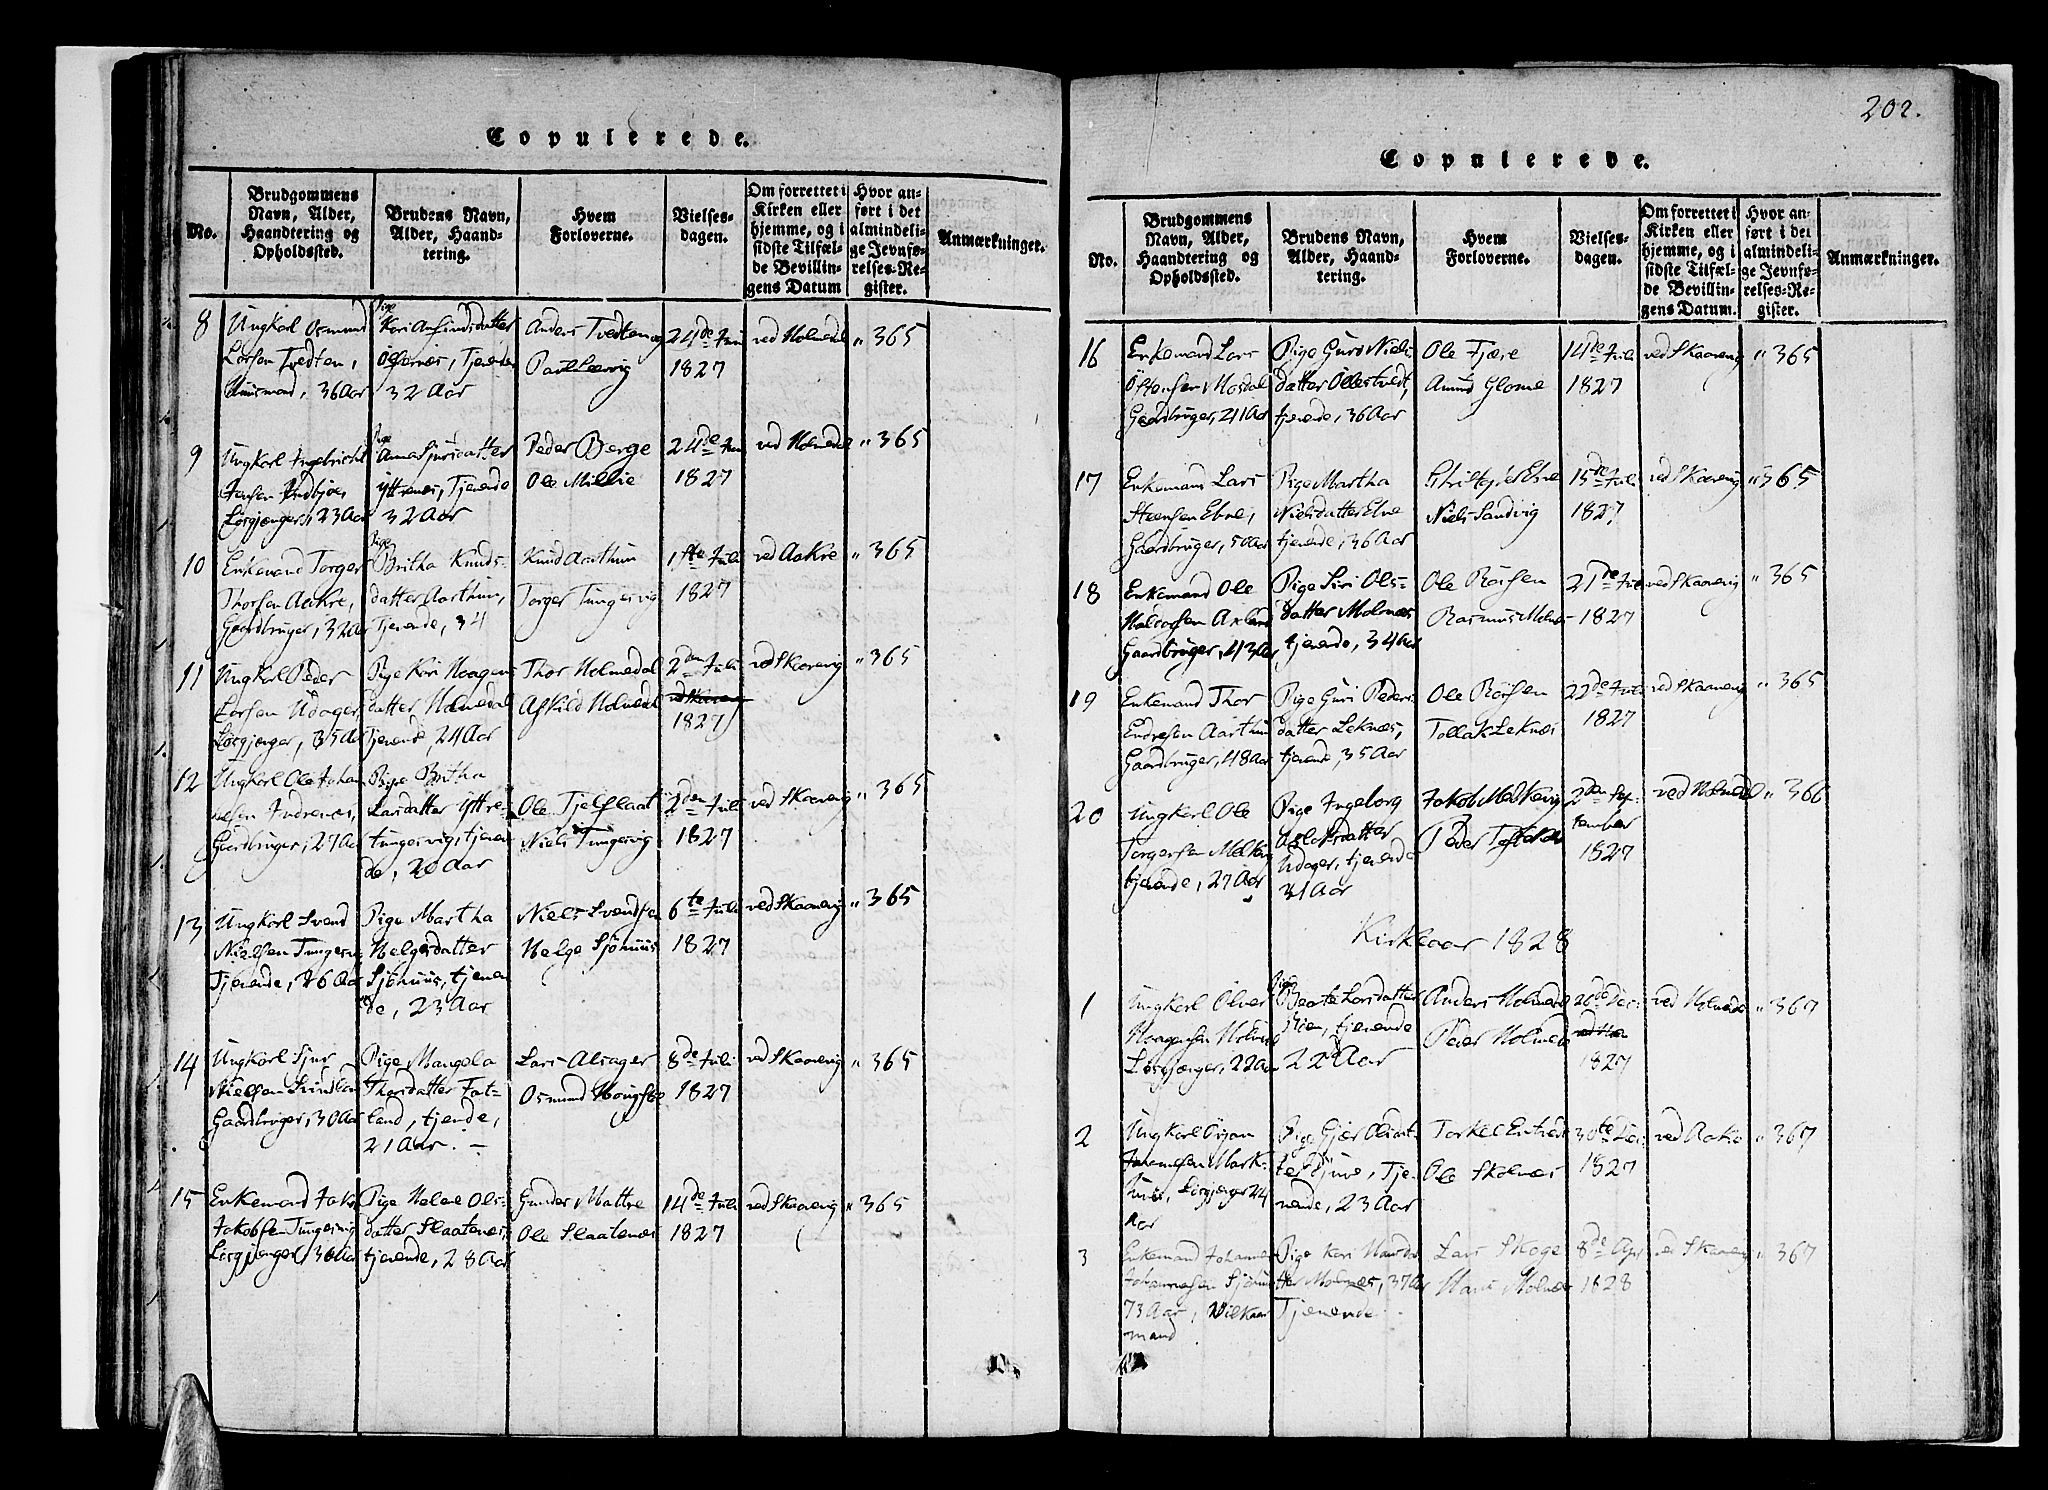 Copulerede.
No.
Brudgommens Navn, Alder, Haandtering og Opholdssted.
Brudens Navn, Alder, Haandtering.
Hvem Forloverne.
Vielsesdagen.
Om forrettet i Kirken eller hjemme, og i sidste Tilfælde Bevillingens Datum
Hvor anført i det almindelige Jevnførelses-Register.
Anmærkninger.
8
Ungkarl Osmund
Larsen Tvedten,
Huusmand, 36 Aar
Pige
Kari Amundsdatter
Tjenende
32 Aar
Anders Tvedten og
Paul Leervig
24de Juni
1827
ved Holmedal
" 365
9
Ungkarl Ingebricht
Jensen
Løsgjænger, 23 Aar
Pige
Anna Sjursdatter
Yttrenæs, Tjenende
32 Aar
Peder Berge
Ole Millie
24de Juni
1827
ved Holmedal
" 365
10
Enkemand Torger
Thorsen Aakre,
Gaardbruger, 32 Aar
Pige
Britha Knuds-
datter Aarthun,
Tjenende, 34
Knud Aarthun
Torger Tungesvig
1ste Juli
1827
ved Aakre
" 365
11
Ungkarl Peder
Larsen Udager,
Løsgjænger, 35 Aar
Pige Kari Haagens
datter Holmedal
Tjenende, 24 Aar
Thor Holmedal
Askild Holmedal
2den Juli
1827
ved Skaanevig
" 365
12
Ungkarl Ole Johan
nesen Indrenæs,
Gaardbruger, 27 Aar
Pige Britha
Larsdatter Yttre-
tungesvig, tjenen
de, 20 Aar
Ole Tjelflaat
Niels Tungesvig
2den Juli
1827
ved Skaanevig
" 365
13
Ungkarl Svend
Nielsen Tungesvig
Tjenende, 26 Aar
Pige Martha
Helgesdatter
Sjøhuus, tjenen
de, 23 Aar
Niels Svendsen
Helge Sjøhuus
6te Juli
1827
ved Skaanevig
" 365
14
Ungkarl Sjur
Nielsen Svindland
Gaardbruger, 30 Aar
Pige Mangela
Thorsdatter Fat-
land, tjende,
21 Aar. -
Lars Alsager
Osmund Hougstøl
8de Juli
1827
ved Skaanevig
" 365
15
Enkemand Jakob
Jakobsen Tungesvig
Løsgjænger, 30 Aar
Pige Helene Ols-
datter Slaatenæs,
tjenende, 28 Aar
Gunder Mattre
Ole Slaatenæs
14de Juli
1827
ved Skaanevig
" 365
202.
Copulerede.
No.
Brudgommens Navn, Alder, Haandtering og Opholdssted.
Brudens Navn, Alder, Haandtering.
Hvem Forloverne.
Vielsesdagen.
Om forrettet i Kirken eller hjemme, og i sidste Tilfælde Bevillingens Datum.
Hvor anført i det almindelige Jevnførelses-Register.
Anmærkninger.
16
Enkemand Lars
Østensen Mosdal
Gaardbruger, 41 Aar
Pige Guro Niels
datter Øllestvedt,
tjenende, 36 Aar
Ole Fjære
Amund Glome
14de Juli
1827
ved Skaanevig
" 365
17
Enkemand Lars
Steensen Ebne,
Gaardbruger, 50 Aar
Pige Martha
Nielsdatter Ebne
tjenende, 36 Aar
Christopher Ebne
Niels Sandvig
15de Juli
1827
ved Skaanevig
" 365
18
Enkemand Ole
Halvorsen Axland
Gaardbruger, 43 Aar
Pige Siri Ols-
datter Molnæs
tjenende, 34 Aar
Ole Børsen
Rasmus Molnæs
21de Juli
1827
ved Skaanevig
" 365
19
Enkemand Thor
Endresen Aarthun
Gaardbruger, 48 Aar
Pige Guri Peders
datter Leknæs,
tjenende, 35 Aar
Ole Børsen
Tollak Leknæs
22de Juli
1827
ved Skaanevig
" 365
20
Ungkarl Ole
Torgersen Melkevig
tjenende, 27 Aar
Pige Ingeborg
Aslaksdatter
Udager, tjenende
21 Aar
Jakob Melkevig
Peder
2den Sep-
tember
1827
ved Holmedal
" 366
Kirkeaar 1828
1
Ungkarl Olver
Haagensen Holmedal
Løsgjænger, 22 Aar
Pige
Beate Larsdatter
tjenende
22 Aar
Anders Holmedal
Peder Holmedal
26de Dec:
1827
ved Holmedal
" 367
2
Ungkarl Ørjan
Johannesen Mark-
huus, Løsgjænger 24
Aar
Pige Gjær Olsdat-
ter Tjene-
nende, 23 Aar
Torkel
Ole Skolnæs
30te Dec:
1827
ved Aakre
" 367
3
Enkemand Johannes
Johannesen Sjøhuus
73 Aar, Vilkaar
mand
Pige Kari Hansdat
ter Molnæs, 37 Aar
Tjenende.
Lars Skoge
Hans Molnæs
8de Apr
1828
ved Skaanevig
" 367